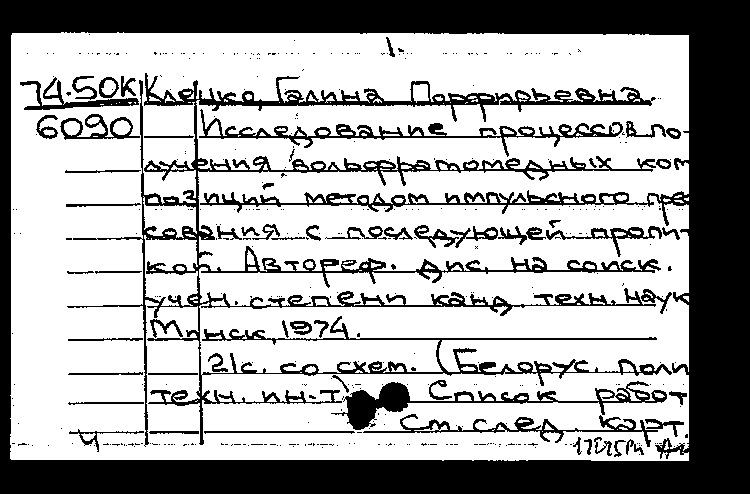 1.
74.50К Клецко, Галина Порфирьевна.
6090 Исследование процессов по-
лучения вольфратомедных ком
позиций методом импульсного прес
сования с последующей пропит
кой. Автореф. дис. на соиск.
учен. степени канд. техн. наук
Минск, 1974.
21с. со схем. (Белорус. поли
техн. ин-т) Список работ
См. след. карт.
ч